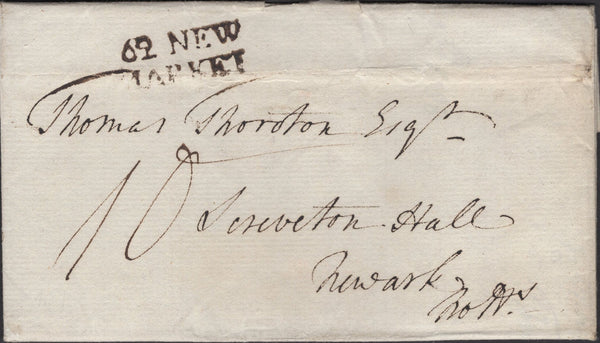 62 NEW
MARKET
Thomas Thoroton Esqr.
10
Screveton Hall
Newark
Notts.